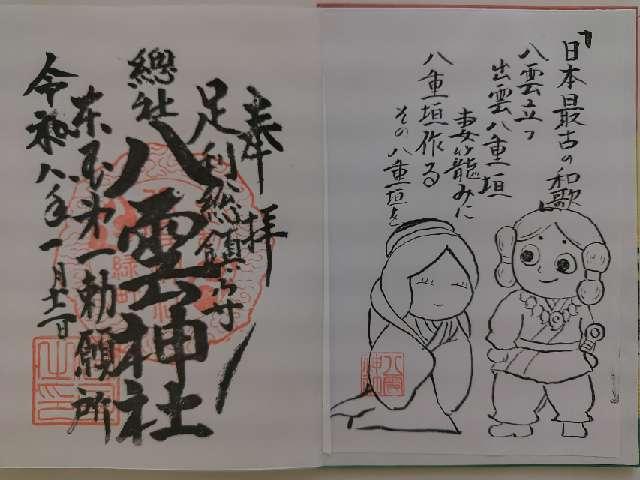 「日本最古の和歌」
八雲立つ
出雲八重垣
妻籠みに
八重垣作る
その八重垣を
奉拝
足利総領守
總社
八雲神社
東国第一勅願所
令和八年一月十二日
緑町